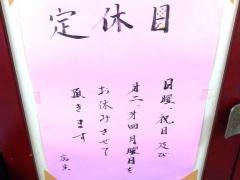 定休日
日曜、祝日及び
才二、才四月曜日を
お休みさせて
頂きます
店主